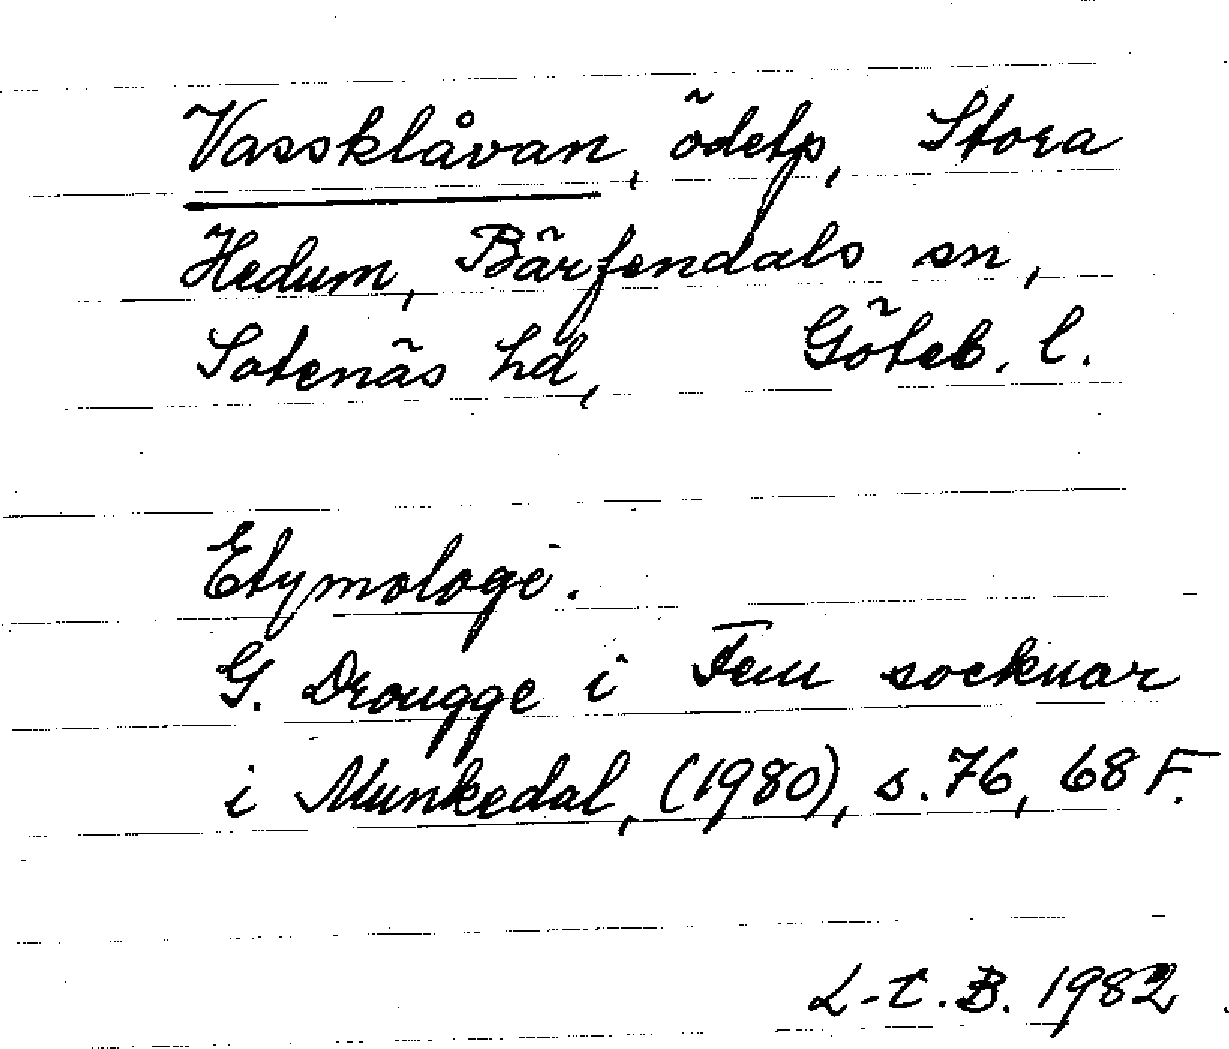 Vassklåvan, ödetp, Stora
Hedum, Bärfendals sn,
Sotenäs hd, Göteb. l.
Etymologi.
G. Drougge i Fem socknar
i Munkedal, (1980), s. 76, 68 F.
L-C. B. 1982